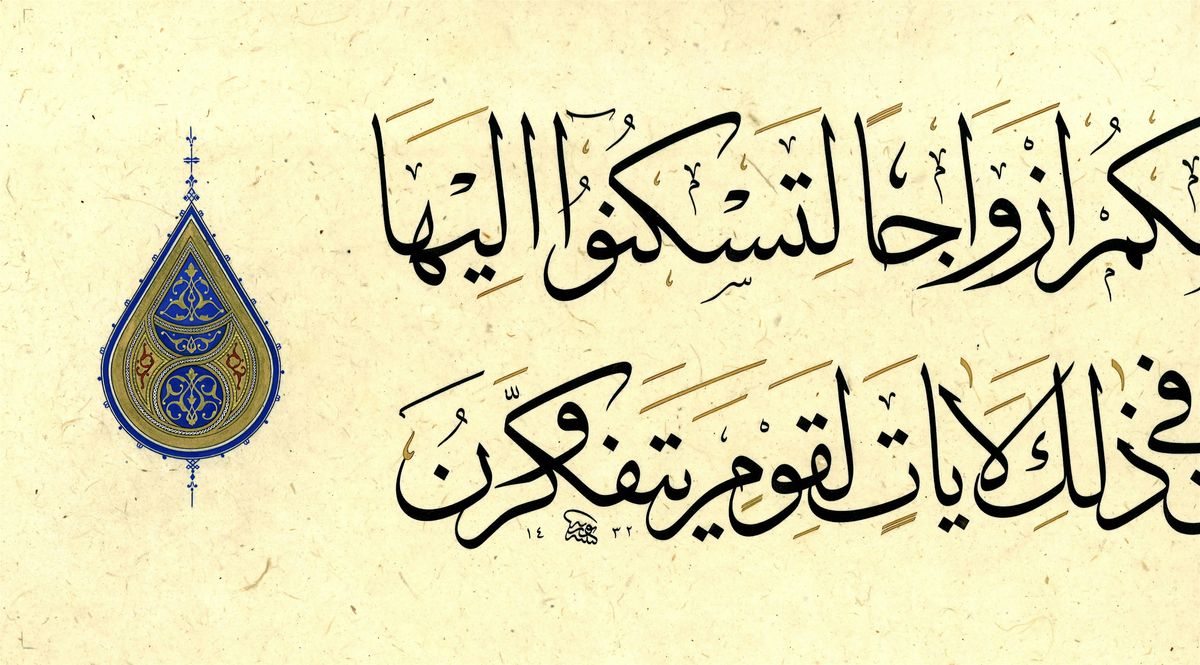 كُمْ أَزْوَاجًا لِتَسْكُنُوٓا إِلَيْهَا
فِي ذَلِكَ لَآيَاتٍ لِقَوْمٍ يَتَفَكَّرُونَ
١٤٣٢